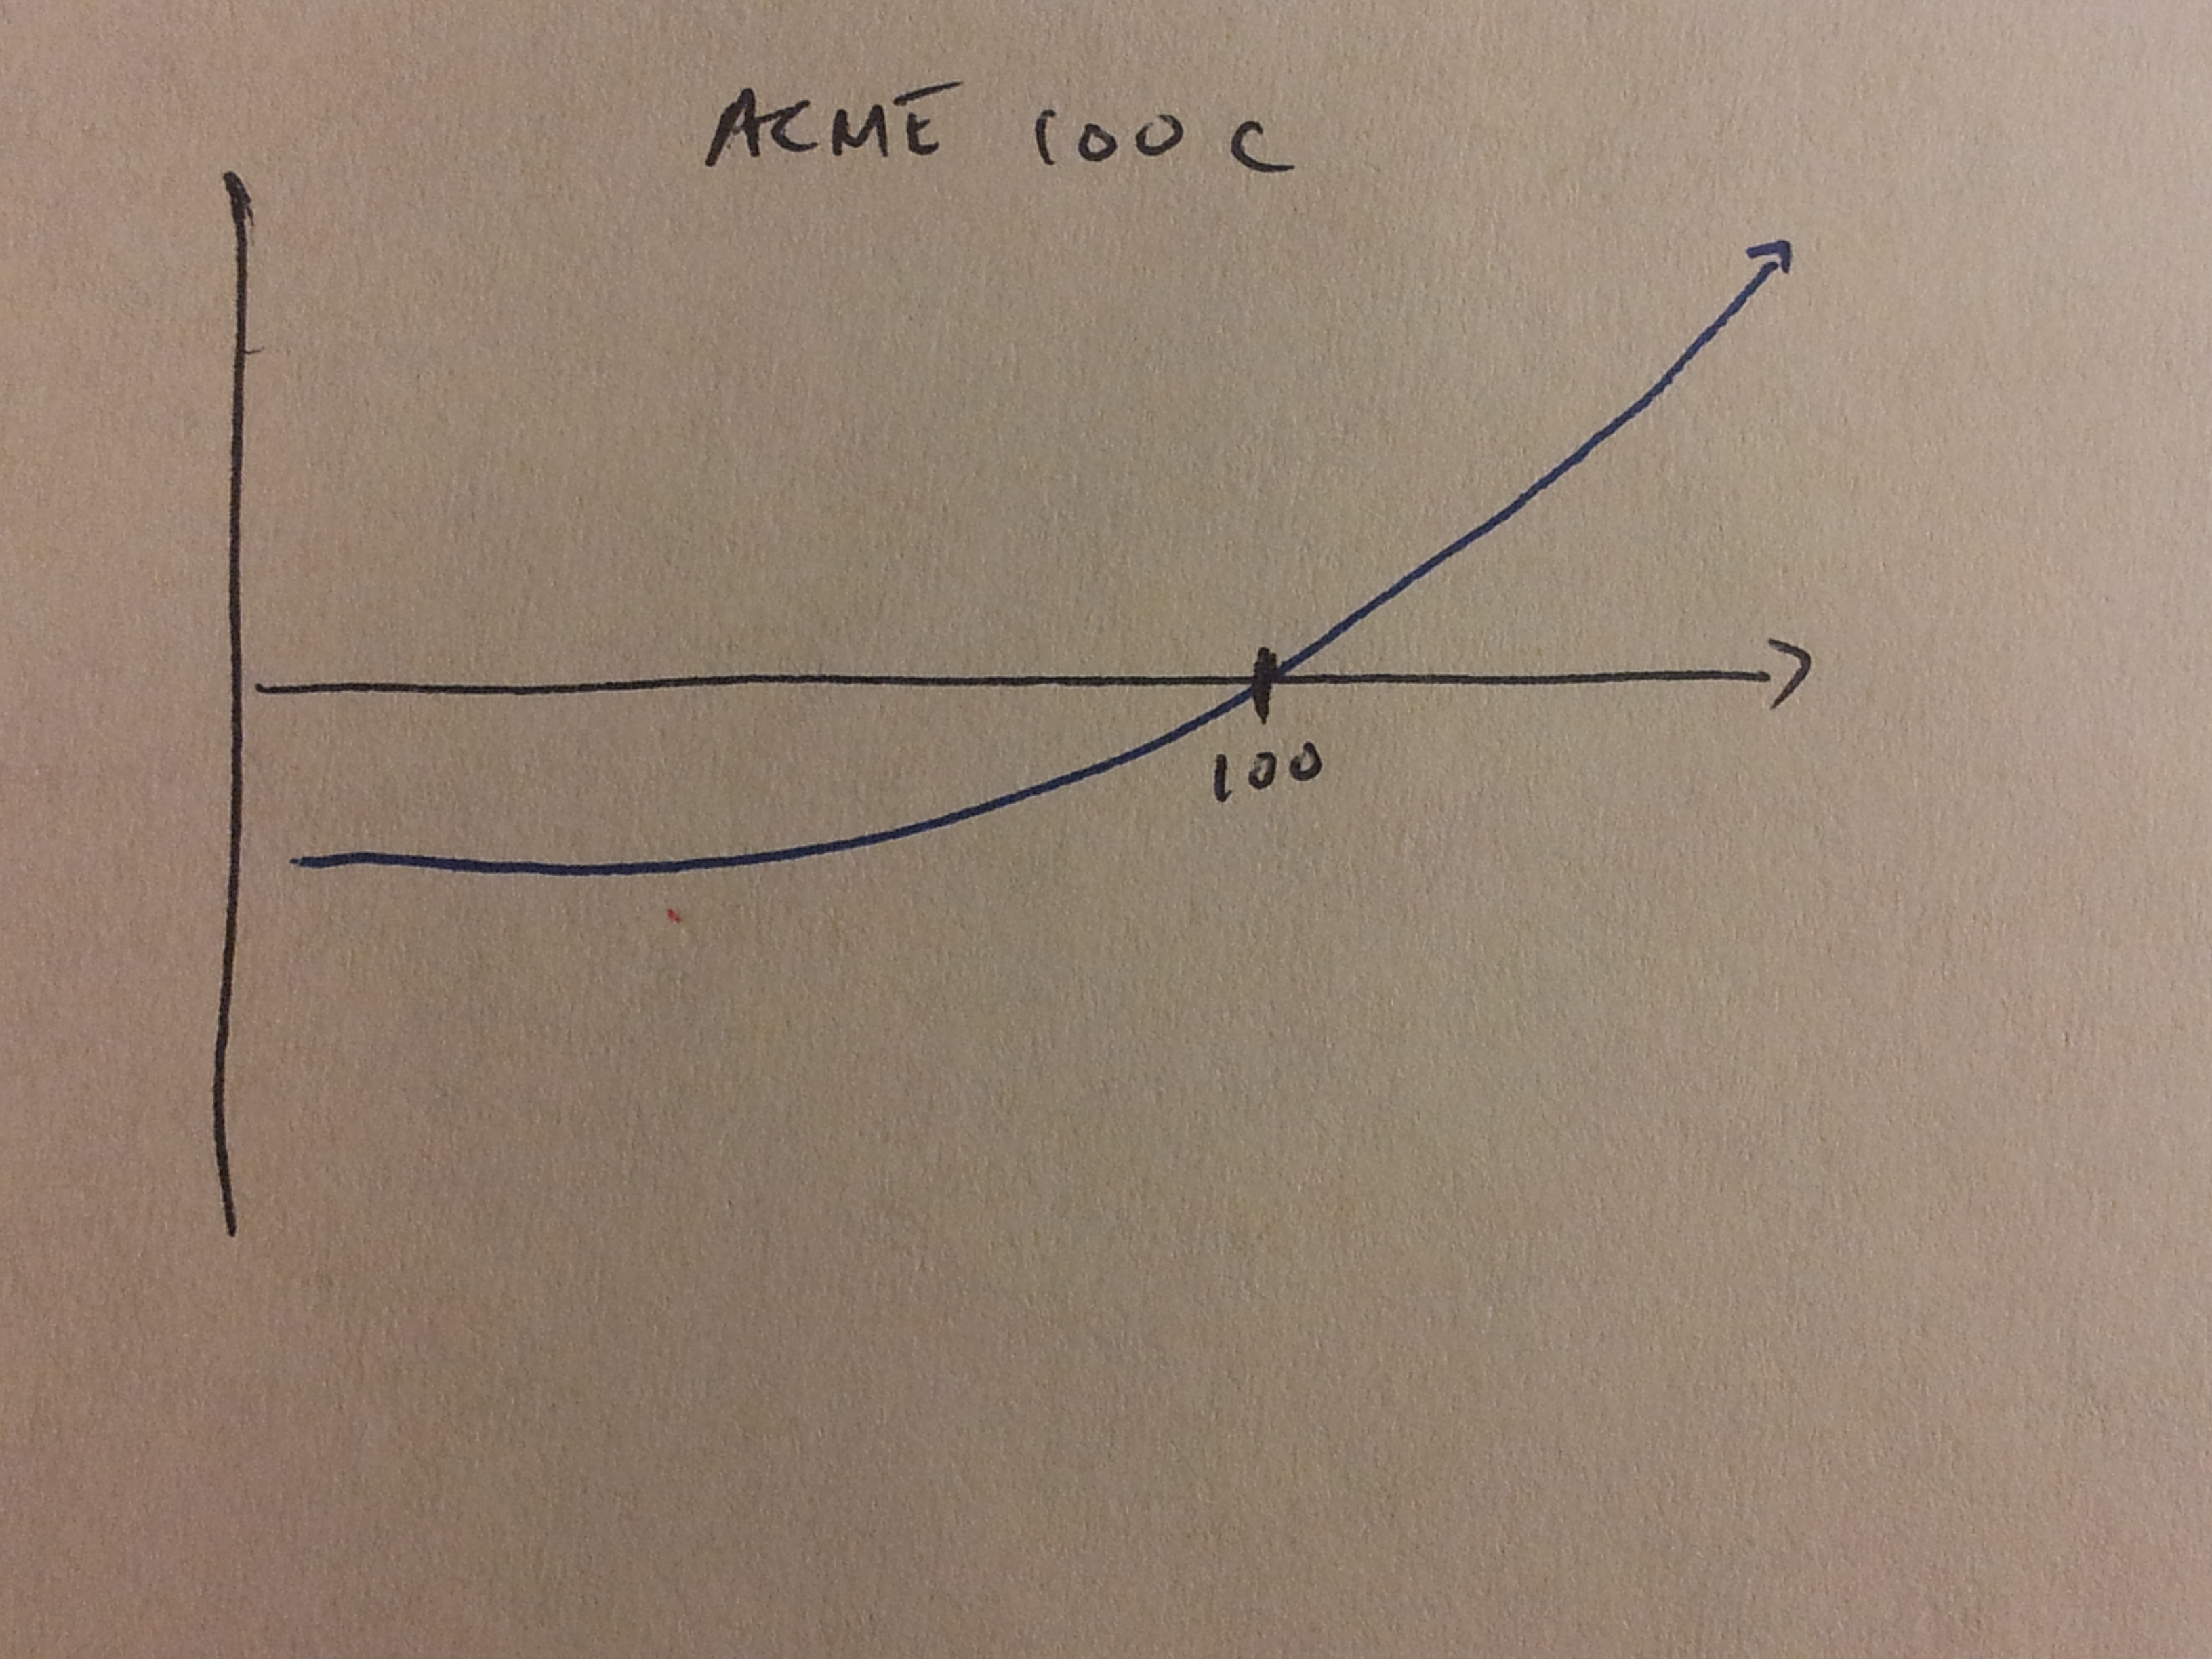 ACME 100 C
100